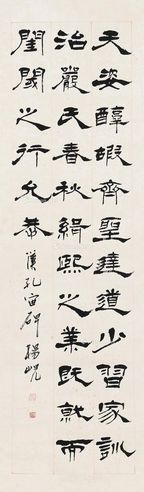 天姿醇嘏齊聖達道少習家訓
治嚴氏春秋緝熙之業既就而
閨閾之行允恭
漢孔宙碑 楊峴